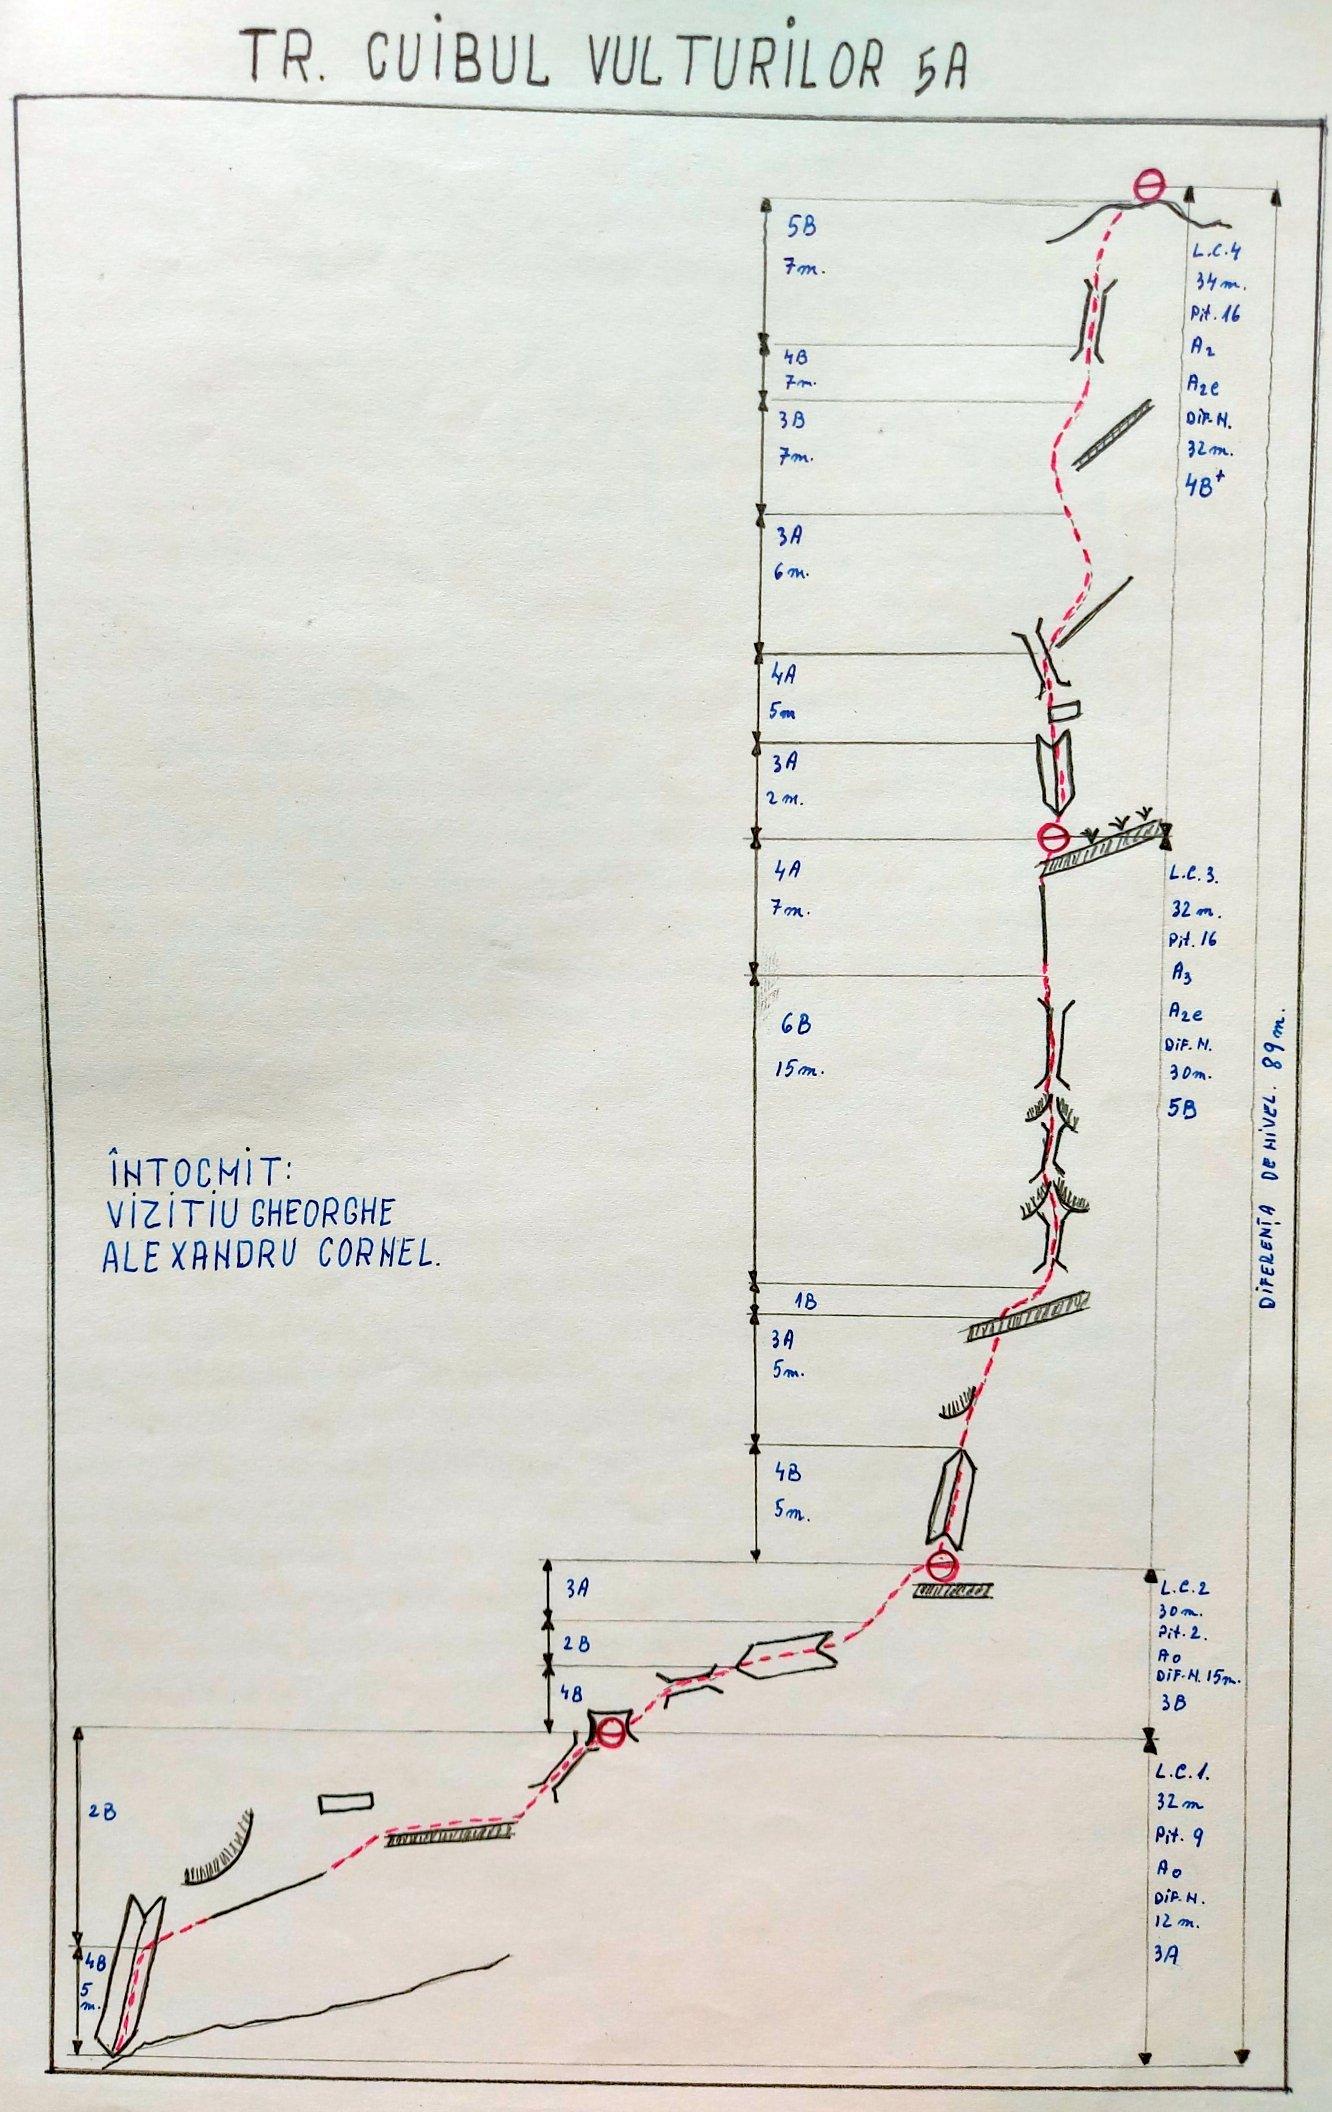 TR. CUIBUL VULTURILOR 5A
5B
7m.
4B
7m.
3B
7m.
3A
6m.
4A
5m
3A
2m.
4A
7m.
6B
15m.
1B
3A
5m.
4B
5m.
3A
2B
4B
2B
4B
5
m.
L.C.4
34m.
Pit.16
A2
A2e
DiF.N.
32m.
4B+
L.C.3.
32m.
Pit.16
A3
A2e
DiF.N.
30m.
5B
L.C.2
30m.
Pit.2.
A0
DiF.N.15m.
3B
L.C.1.
32m
Pit.9
A0
DiF.N.
12m.
3A
DIFERENȚA DE NIVEL. 89m.
ÎNTOCMIT:
VIZITIU GHEORGHE
ALEXANDRU CORNEL.